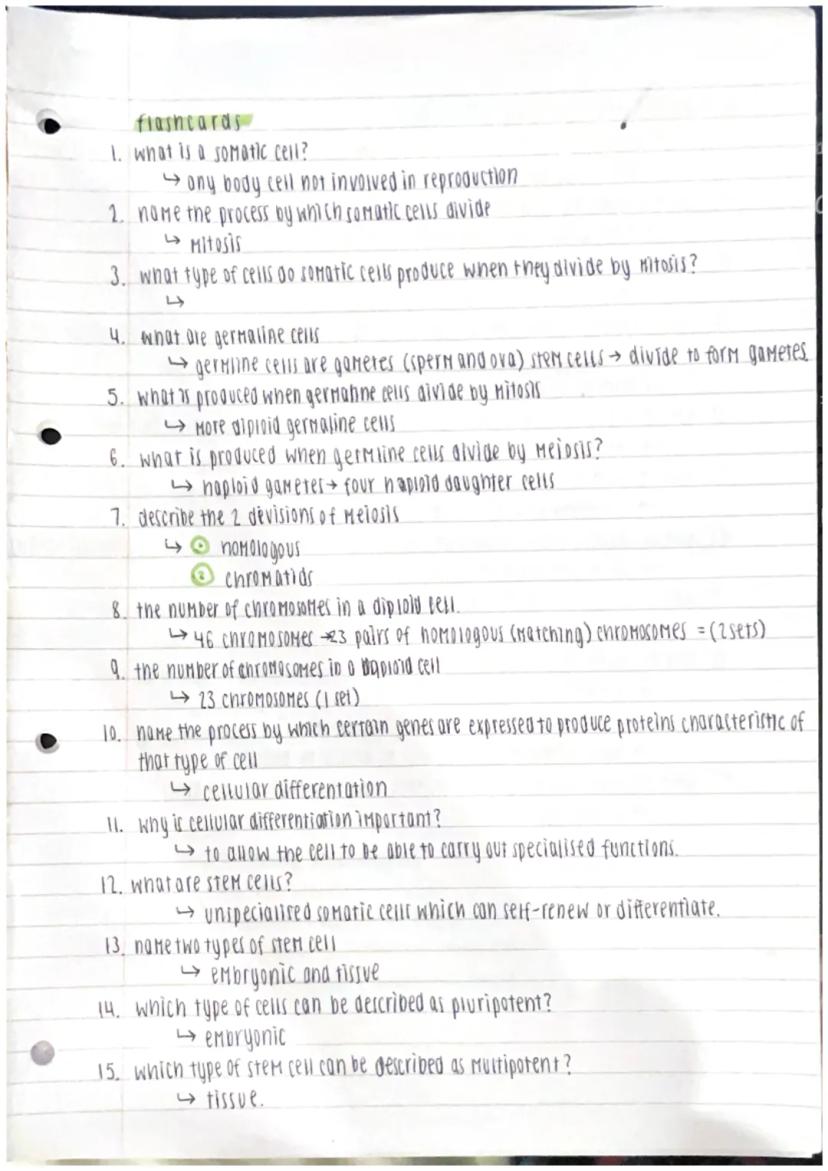 flashcards
1. what is a somatic cell?
↳ any body cell not involved in reproduction
2. name the process by which somatic cells divide
↳ mitosis
3. what type of cells do somatic cells produce when they divide by mitosis?
↳
4. what are germaline cells
↳ germline cells are gametes (sperm and ova) stem cells → divide to form gametes
5. what is produced when germaline cells divide by mitosis
↳ more diploid germaline cells
6. what is produced when germline cells divide by meiosis?
↳ haploid gametes → four haploid daughter cells
7. describe the 2 divisions of meiosis
↳ ① homologous
② chromatids
8. the number of chromosomes in a diploid cell.
↳ 46 chromosomes → 23 pairs of homologous (matching) chromosomes = (2 sets)
9. the number of chromosomes in a haploid cell
↳ 23 chromosomes (1 set)
10. name the process by which certain genes are expressed to produce proteins characteristic of
that type of cell
↳ cellular differentation
11. why is cellular differentiation important?
↳ to allow the cell to be able to carry out specialised functions.
12. what are stem cells?
↳ unspecialised somatic cells which can self-renew or differentiate.
13. name two types of stem cell
↳ embryonic and tissue
14. which type of cells can be described as pluripotent?
↳ embryonic
15. which type of stem cell can be described as multipotent?
↳ tissue.